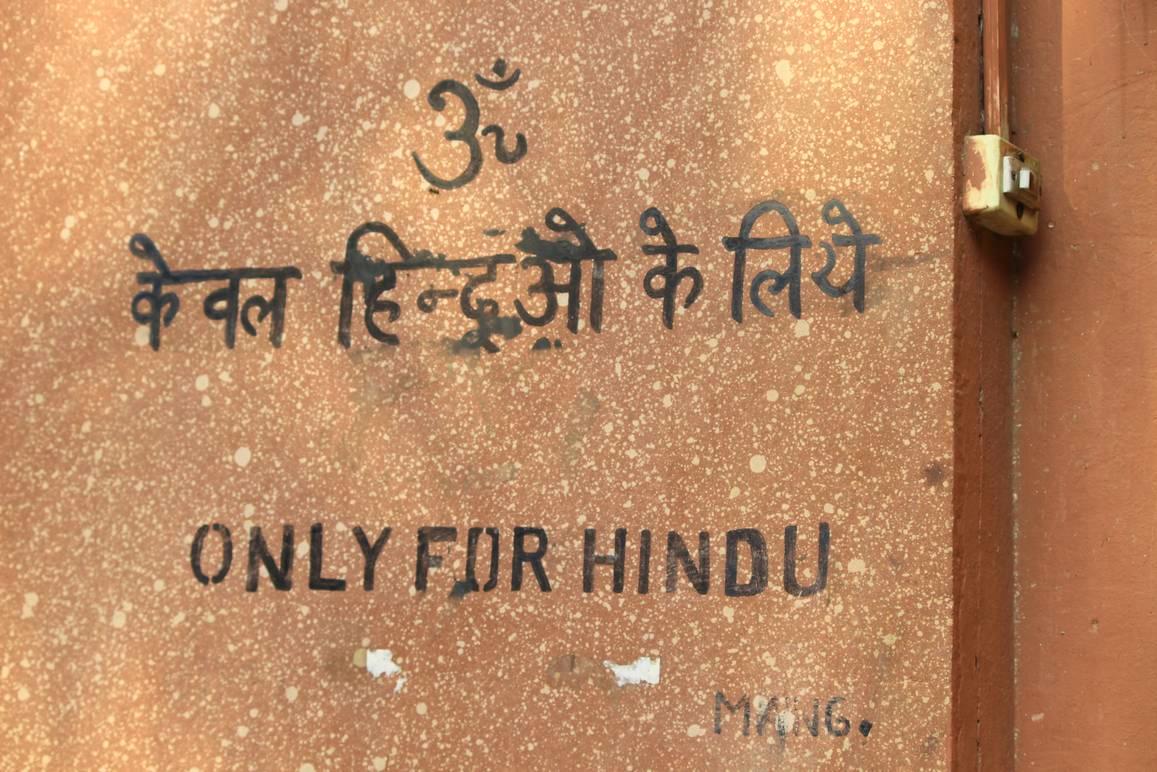 ॐ
केवल हिन्दूओ के लिये
ONLY FOR HINDU
MANG.